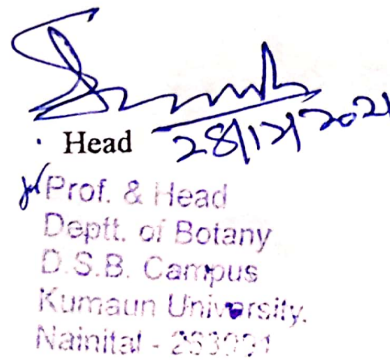 Head
28/12/2021
Prof. & Head
Deptt. of Botany
D.S.B. Campus
Kumaun University.
Nainital -